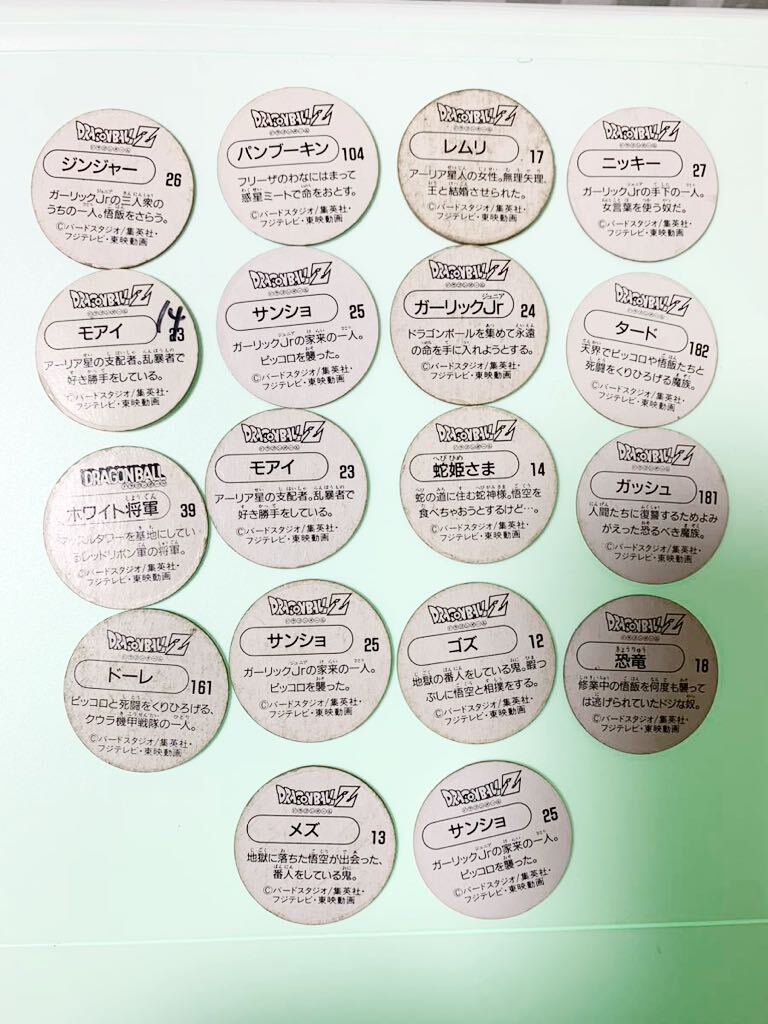 DRAGONBALL Z
ジンジャー
26
ガーリックJrの三人衆の
うちの一人。悟飯をさらう。
©バードスタジオ/集英社・
フジテレビ・東映動画
DRAGONBALL Z
パンブーキン
104
フリーザのわなにはまって
惑星ミートで命をおとす。
©バードスタジオ/集英社・
フジテレビ・東映動画
DRAGONBALL Z
レムリ
17
アーリア星人の女性。無理矢理、
王と結婚させられた。
©バードスタジオ/集英社・
フジテレビ・東映動画
DRAGONBALL Z
ニッキー
27
ガーリックJrの手下の一人。
女言葉を使う奴だ。
©バードスタジオ/集英社・
フジテレビ・東映動画
DRAGONBALL Z
モアイ
14
23
アーリア星の支配者。乱暴者で
好き勝手をしている。
©バードスタジオ/集英社・
フジテレビ・東映動画
DRAGONBALL Z
サンショ
25
ガーリックJrの家来の一人。
ピッコロを襲った。
©バードスタジオ/集英社・
フジテレビ・東映動画
DRAGONBALL Z
ガーリックJr
24
ドラゴンボールを集めて永遠
の命を手に入れようとする。
©バードスタジオ/集英社・
フジテレビ・東映動画
DRAGONBALL Z
タード
182
天界でピッコロや悟飯たちと
死闘をくりひろげる魔族。
©バードスタジオ/集英社・
フジテレビ・東映動画
DRAGONBALL
ホワイト将軍
39
マッスルタワーを基地にしてい
るレッドリボン軍の将軍。
©バードスタジオ/集英社・
フジテレビ・東映動画
DRAGONBALL Z
モアイ
23
アーリア星の支配者。乱暴者で
好き勝手をしている。
©バードスタジオ/集英社・
フジテレビ・東映動画
DRAGONBALL Z
蛇姫さま
14
蛇の道に住む蛇神様。悟空を
食べちゃおうとするけど…。
©バードスタジオ/集英社・
フジテレビ・東映動画
DRAGONBALL Z
ガッシュ
181
人間たちに復讐するためよみ
がえった恐るべき魔族。
©バードスタジオ/集英社・
フジテレビ・東映動画
DRAGONBALL Z
ドーレ
161
ピッコロと死闘をくりひろげる、
クウラ機甲戦隊の一人。
©バードスタジオ/集英社・
フジテレビ・東映動画
DRAGONBALL Z
サンショ
25
ガーリックJrの家来の一人。
ピッコロを襲った。
©バードスタジオ/集英社・
フジテレビ・東映動画
DRAGONBALL Z
ゴズ
12
地獄の番人をしている鬼。暇つ
ぶしに悟空と相撲をする。
©バードスタジオ/集英社・
フジテレビ・東映動画
DRAGONBALL Z
恐竜
18
修業中の悟飯を何度も襲って
は逃げられていたドジな奴。
©バードスタジオ/集英社・
フジテレビ・東映動画
DRAGONBALL Z
メズ
13
地獄に落ちた悟空が出会った、
番人をしている鬼。
©バードスタジオ/集英社・
フジテレビ・東映動画
DRAGONBALL Z
サンショ
25
ガーリックJrの家来の一人。
ピッコロを襲った。
©バードスタジオ/集英社・
フジテレビ・東映動画